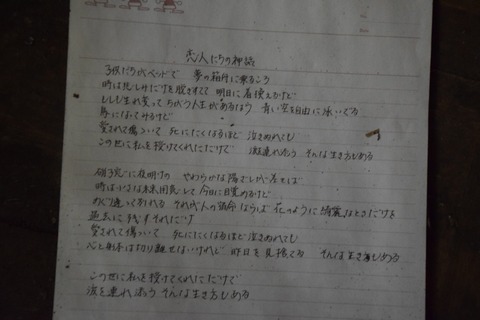 恋人たちの神話
子供たちがベッドで 夢の箱舟に乗るころ
時は悲しみだけを脱ぎすてて 明日に着換えるけど
もしも生れ変って ちがう人生があるなら 青い空を自由に泳いでる
鳥になってみるけど
愛されて傷ついて 死にたくなるほど 泣きぬれても
この世に私を授けてくれただけで 涙連れ添う そんな生き方もある
硝子窓に夜明けの やわらかな陽ざしが
時はいつも未来
今日に目覚めるけど
めぐり逢って別れる それが人の宿命ならば 花のように綺麗なときだけを
過去に残すそれだけ
愛されて傷ついて 死にたくなるほど 泣きぬれても
心と
は切り離せないけれど 昨日を見捨てる そんな生き方もある
この世に私を授けてくれただけで
涙を連れ添う そんな生き方もある